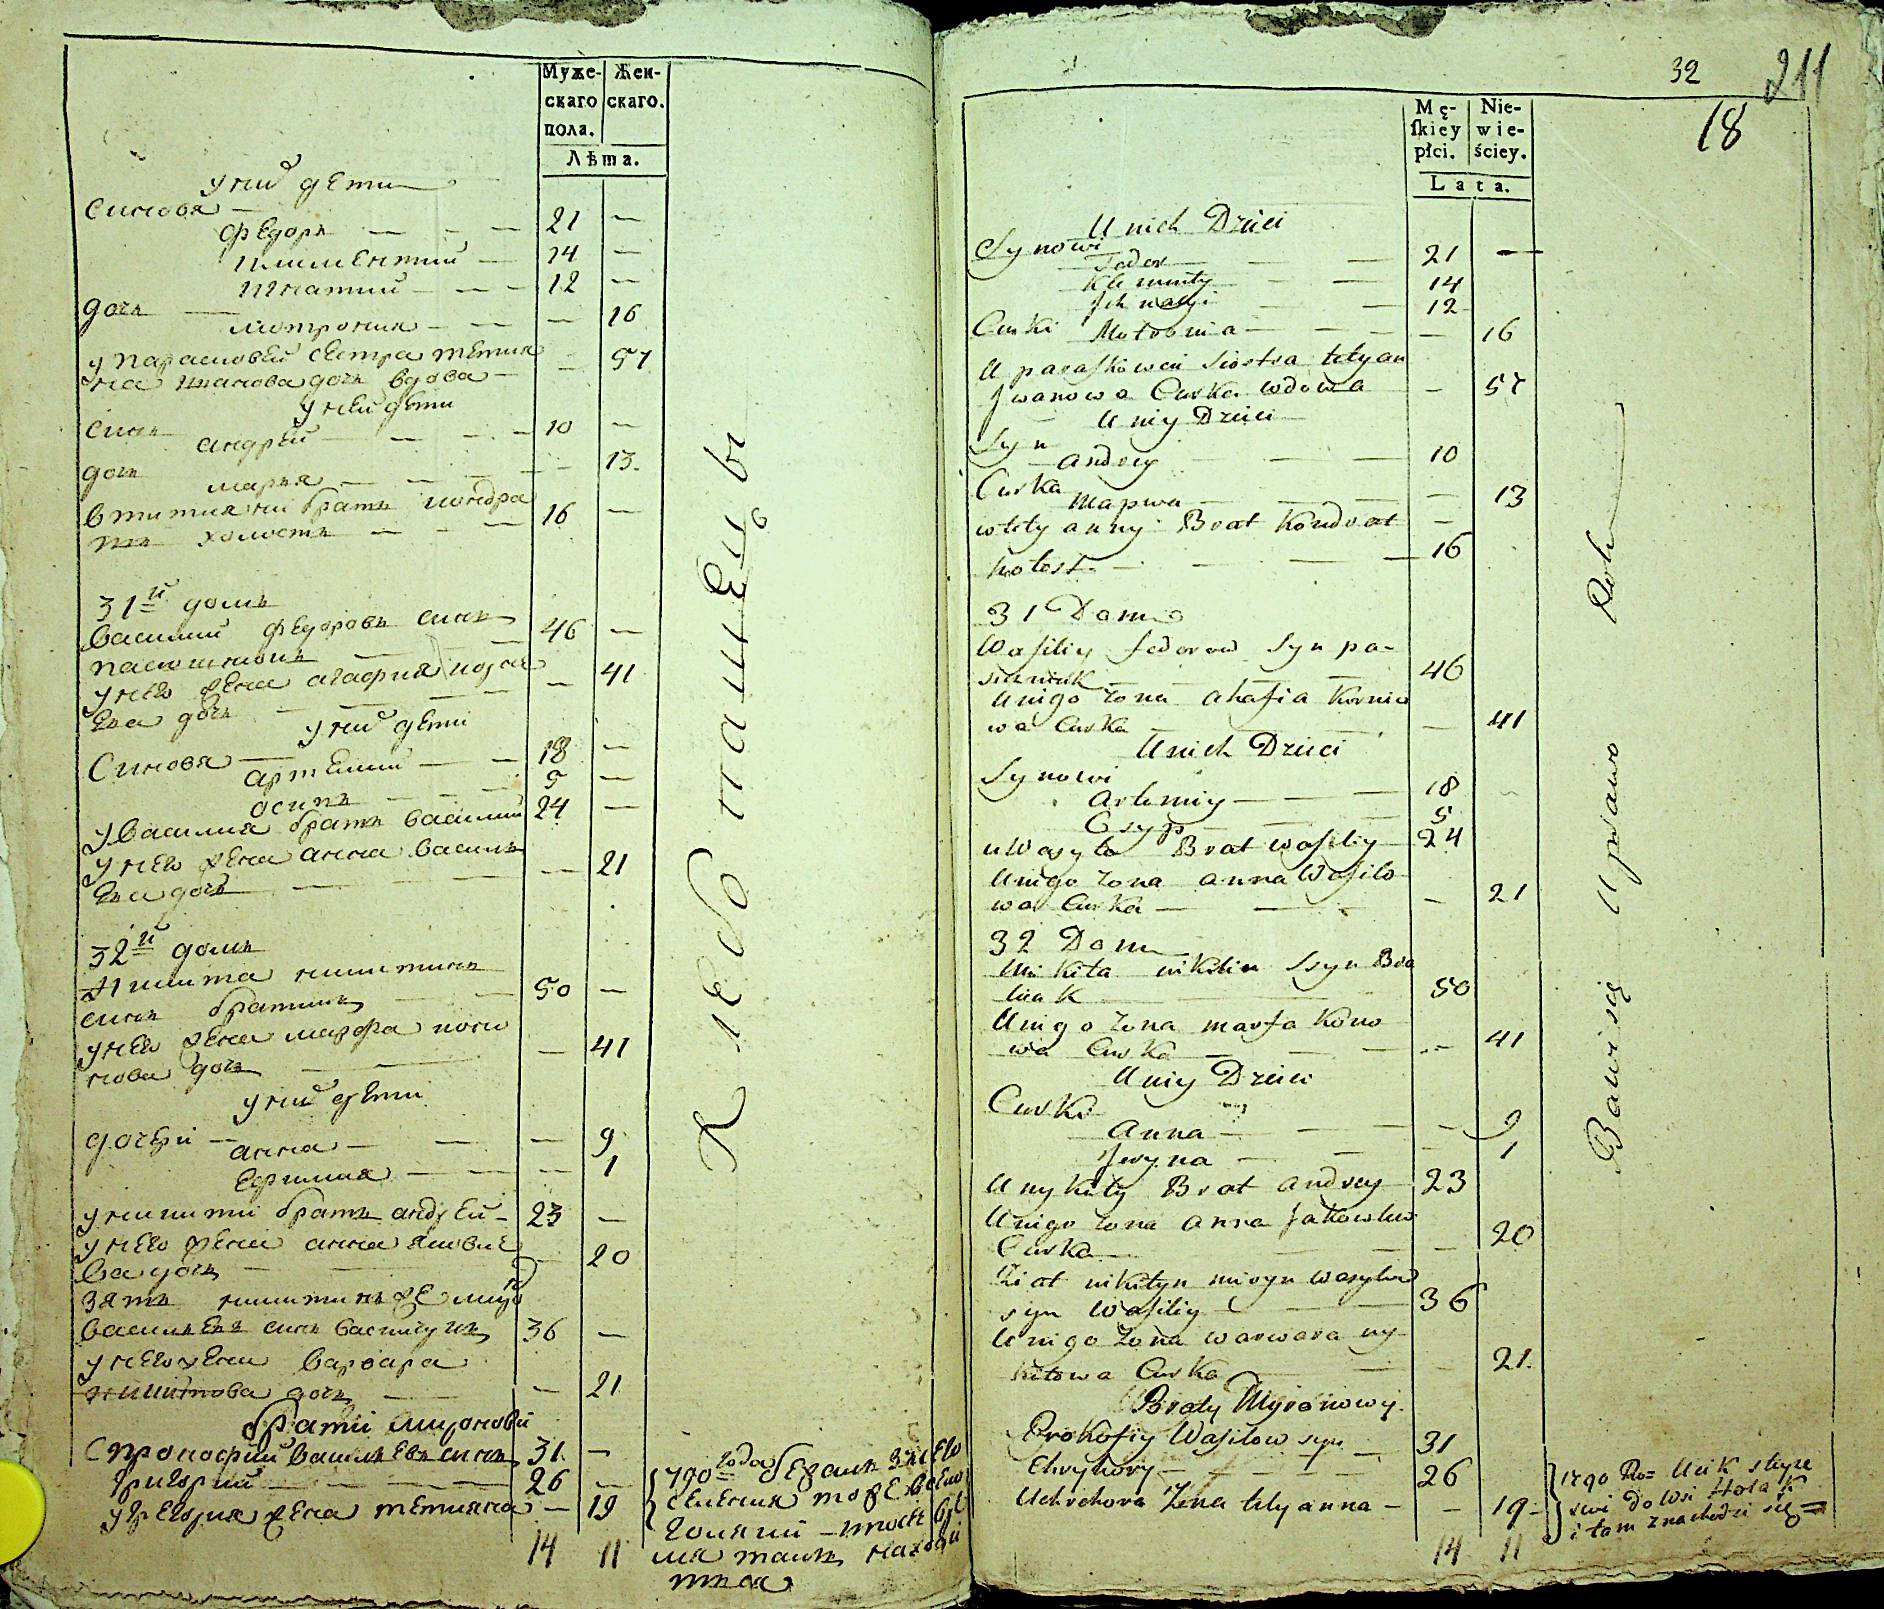 Муже-
скаго
пола.
Жен-
скаго.
Лѣта.
у них дети
Синовя
Федоръ — — — 21 —
Климентий — 14 —
Игнатий — — — 12 —
дочь
Мотрония — — — — 16
у Парасковеи сестра Тетия
на Иванова дочь вдова — — 57
у неи дети
синъ
андрей — — — 10 —
дочь
мария — — — — 13.
в титияни братъ кондра
тъ холостъ — — — 16 —
31й домъ
Василий Федоровъ синъ
пасюшнюкъ 46 —
у него жена агафия корне
ева дочь — — — 41
у них дети
Синовя —
артемий — — 18 —
осипъ — — 5 —
у василия братъ василий 24 —
у него жена анна василь
ева дочь — — — 21
32й домъ
Никита никитинъ
синъ братникъ — — 50 —
у него жена марфа коно
нова дочь — — — 41
у них дети
дочери —
анна — — — 9
Евгиния — — — 1
у никити братъ андрей — 23 —
у него жена анна яковле
ва дочь — — 20
зять никитинъ же миро
васильевъ синъ василий 36 —
у него жена варвара
никитова дочь — — 21
братия мироновы
Прокофий Васильевъ синъ 31. —
Григорий — — — 26 —
у Грегория жена тетияна — 19
1790 года бежали
14 11
32
211
18
Mę-
ſkiey
płci.
Nie-
wie-
ściey.
Lata.
U nich Dzieci
Synowi
Fedor — — 21 —
Klementy — — 14
Jhnacyi — — 12
Curki Motronia — — — — 16
U paraskowei siostra tetyan
Jwanowa Curka wdowa — 57
U niy Dzieci
Syn
Andrey — — — 10
Curka
Marya — — — — 13
w tetyanny Brat Kondrat —
holost — — — 16
31 Dom
Wasiliy fedorow Syn pa-
siuniuk — — — 46
Unigo zona ahafia Kornie
wa Curka — — 41
Unich Dzieci
Synowi
Artemiy — — — 18
Osyp — — — 5
u Wasyla Brat Wasiliy — 24
Unigo zona anna Wasile-
wa Curka — — — 21
32 Dom
Mikita nikitin Ssyn Bra
tniak 50
Unigo zona marfa Kono
wa Curka — — — 41
Uniy Dzieci
Curki
Anna — — — — 9
Jewyna — — — 1
U nykity Brat andrey — 23
Unigo zona anna Jakowlewa
Curka — — — 20
Ziat nikityn miryn wasylow
syn Wasiliy — — 36
Unigo zona warwara ny-
kitowa Curka — — 21.
Braty Myronowy.
Prokofiy Wasilow syn — 31
Ehryhory — — — — 26
U ehrehora Zona tetyanna — — 19 —
1790 Ro= Ucik
do wsi
i tam znachodzi się =
14 11
Хлебопашецы
Bawisię Uprawo Roli